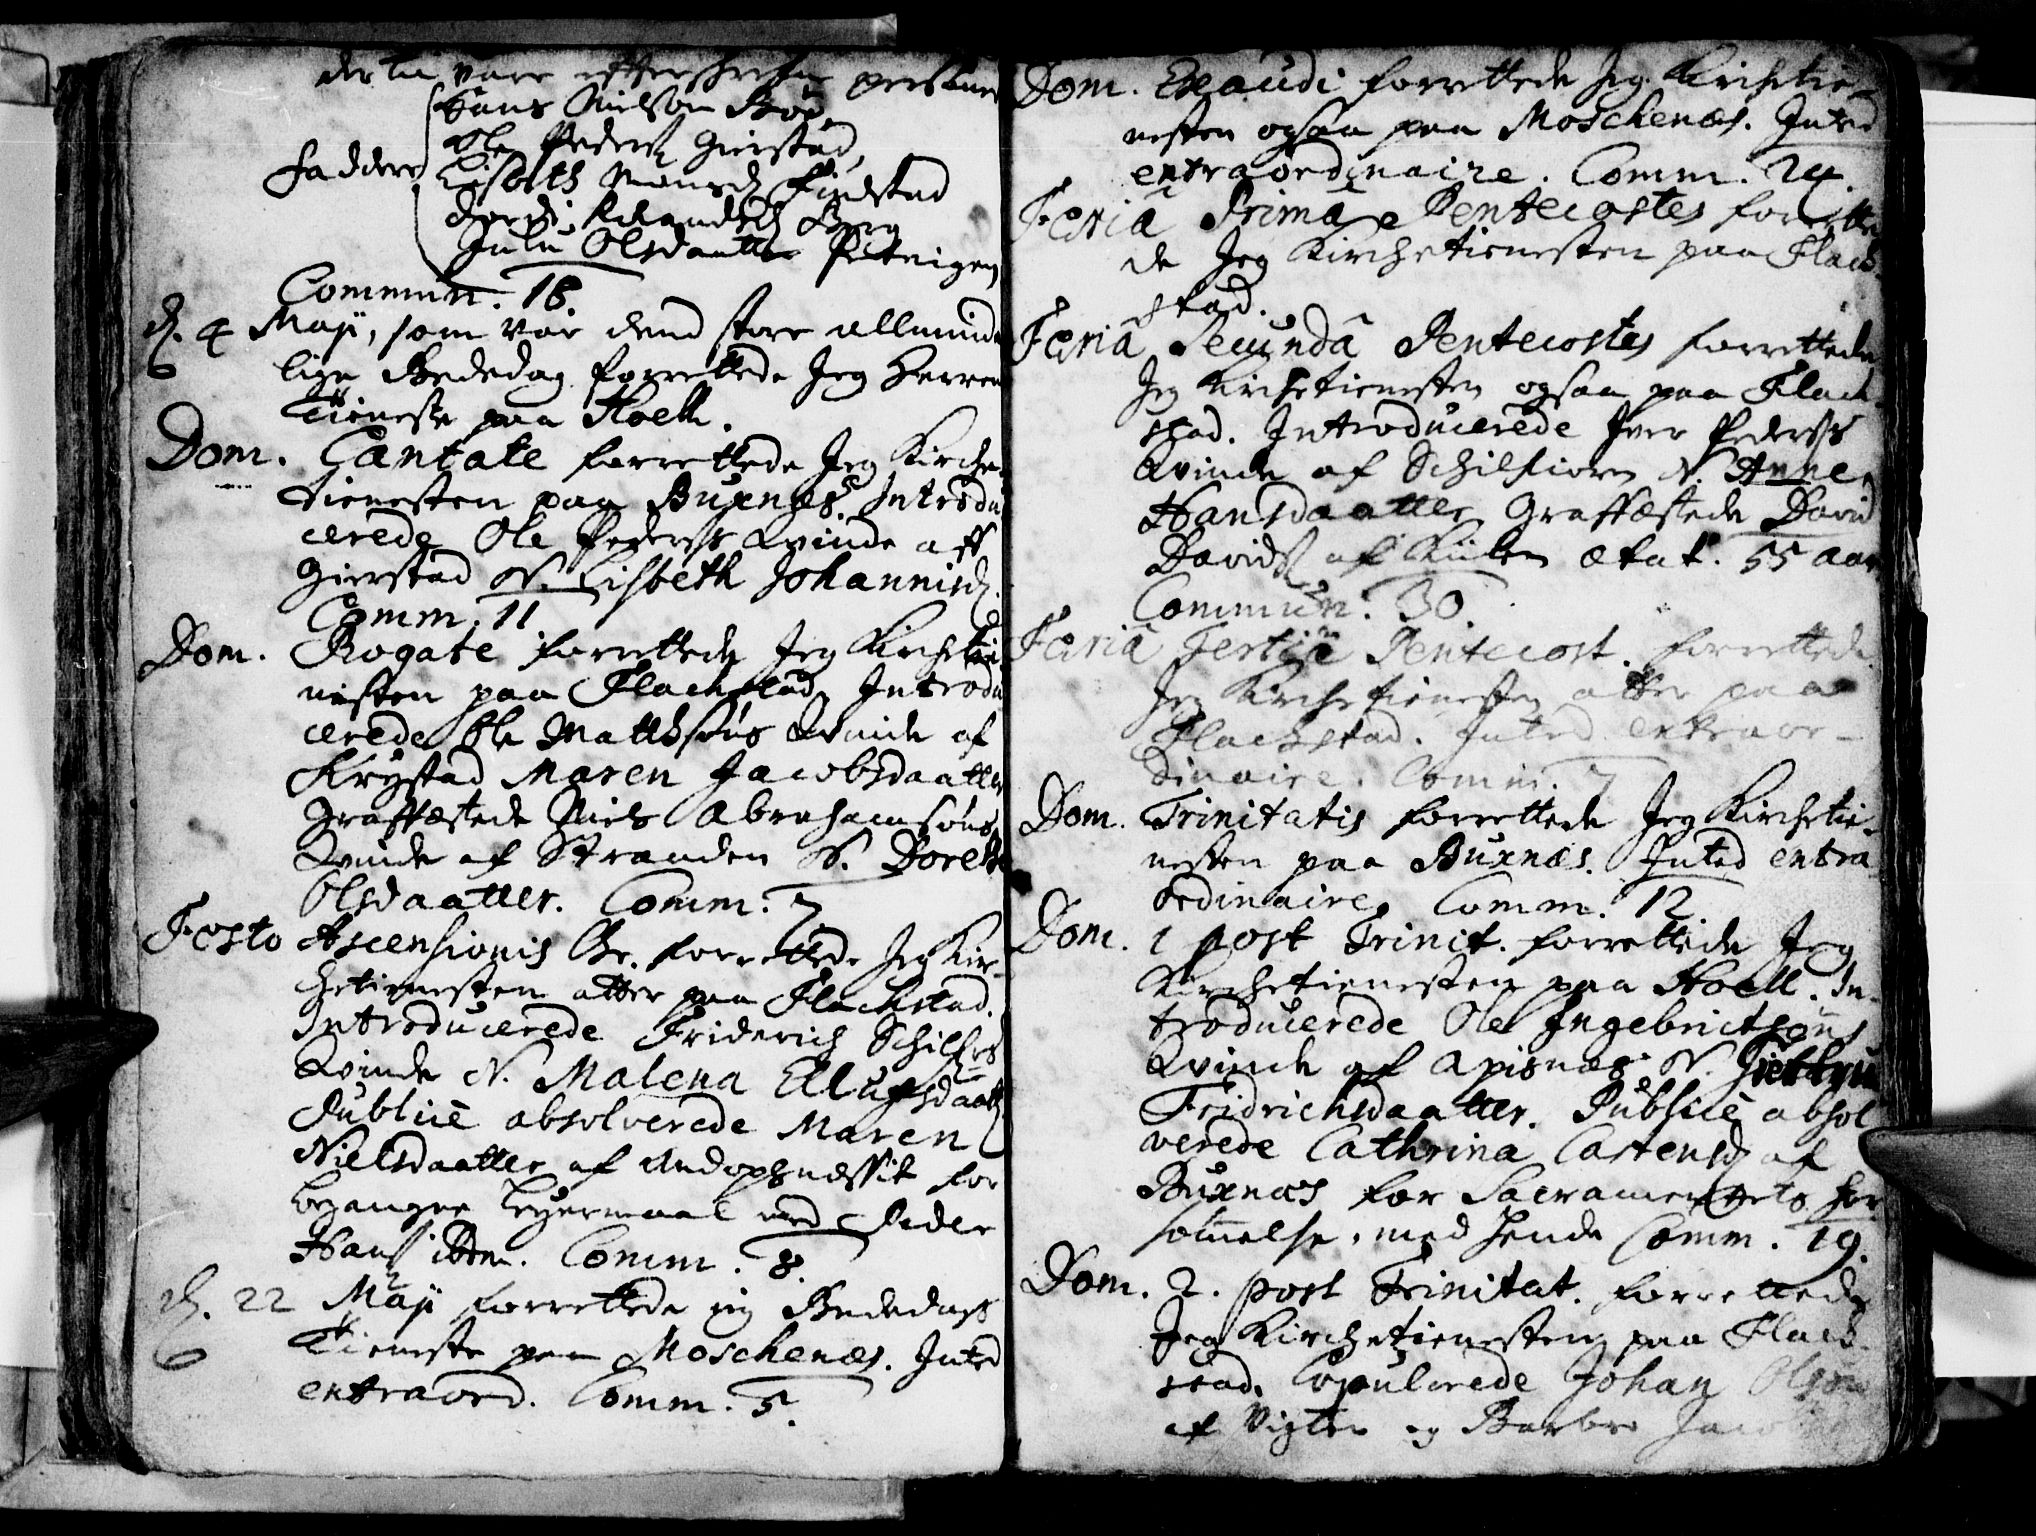 der til vare efterskrefne personer
Hans Nielsøn Böe
Ole Peders Gierstad
Faddere Lisbeth Monsd Finstad
Dordi Amundsd Berg
Julu Olsdaatter Petvigen
Commun. 18
d. 4 Maji, som var dend store allminde
lige Bededag forrettede Jeg Herrens
Tieneste paa Hoell.
Dom. Cantate forrettede Jeg Kirche
tienesten paa Buxnæs. Introdu
cerede Ole Pederss Kvinde aff
Gierstad N. Lisbeth Johannisd.
Comm. 11
Dom. Rogate forrettede Jeg Kirchetie
nisten paa Flachstad. Introdu
cerede Ole Mattissøns Kvinde af
Krystad Maren Jacobsdaatter
Graffæstede Niels Abrahamsøns
Kvinde af Stranden N. Dorethe
Olsdaatter. Comm. 7
Festo Ascensionis Chr. forrettede Jeg Kir-
chetienesten atter paa Flachstad.
Introducerede Friderich Schilfers
Kvinde N. Malena Ellufsdaatt
Publice absolverede Maren
Nielsdaatter af Andopsnæssit for
begangne Leyermaal med Peder
Hanss ibdm. Comm. 8.
d. 22 Maji forrettede jeg Bededags
Tieneste paa Moschenæs. Inted
extraord. Comm. 5.
Dom. Exaudi forrettede Jeg Kirchetie-
nesten ogsaa paa Moschenæs. Inted
extraordinaire. Comm. 24.
Feriâ Primâ Pentecostes forrette
de Jeg Kirchetienesten paa Flach-
stad.
Feria Secundâ Pentecostes forrettede
Jeg Kirchetienesten ogsaa paa Flach-
stad. Introducerede Iver Pederss
Kvinde af Schilfiorn N. Anne
Hansdaatter Graffæstede David
Davids af ætat. 55 aar
Commun. 30.
Feriâ Tertiâ Pentecost. forrettede
Jeg Kirchetienesten atter paa
Flachstad. Inted extraor-
dinaire. Comm. 7
Dom. Trinitatis forrettede Jeg Kirchetie-
nesten paa Buxnæs. Inted extra
ordinaire. Comm. 12
Dom. 1 post Trinit. forrettede Jeg
Kirchetienesten paa Hoell. In-
troducerede Ole Ingebrictsøns
Kvinde af Apisnæs N.
Fridrichsdaatter. Publice absol
verede Cathrina Castensd af
Buxnæs for Sacramentets for
sømelse, med hende Comm. 19.
Dom. 2. post Trinitat. forrettede
Jeg Kirchetienesten paa Flach-
stad. Copulerede Johan Olsøn
af Vigten og Barbro Jaco